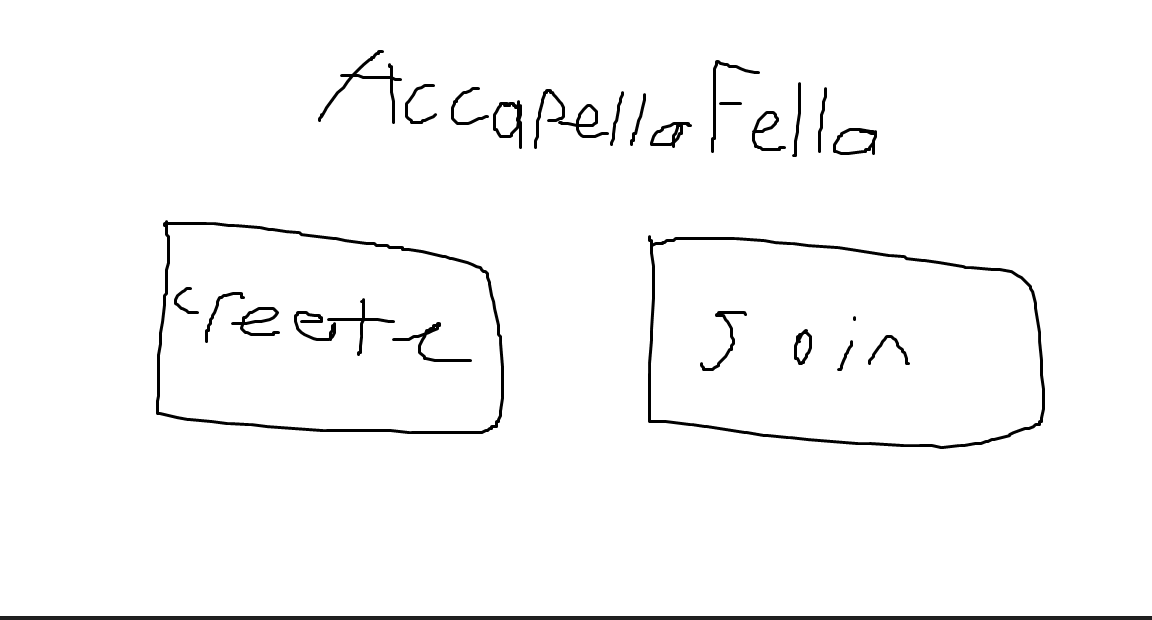 Accapella Fella
create
Join